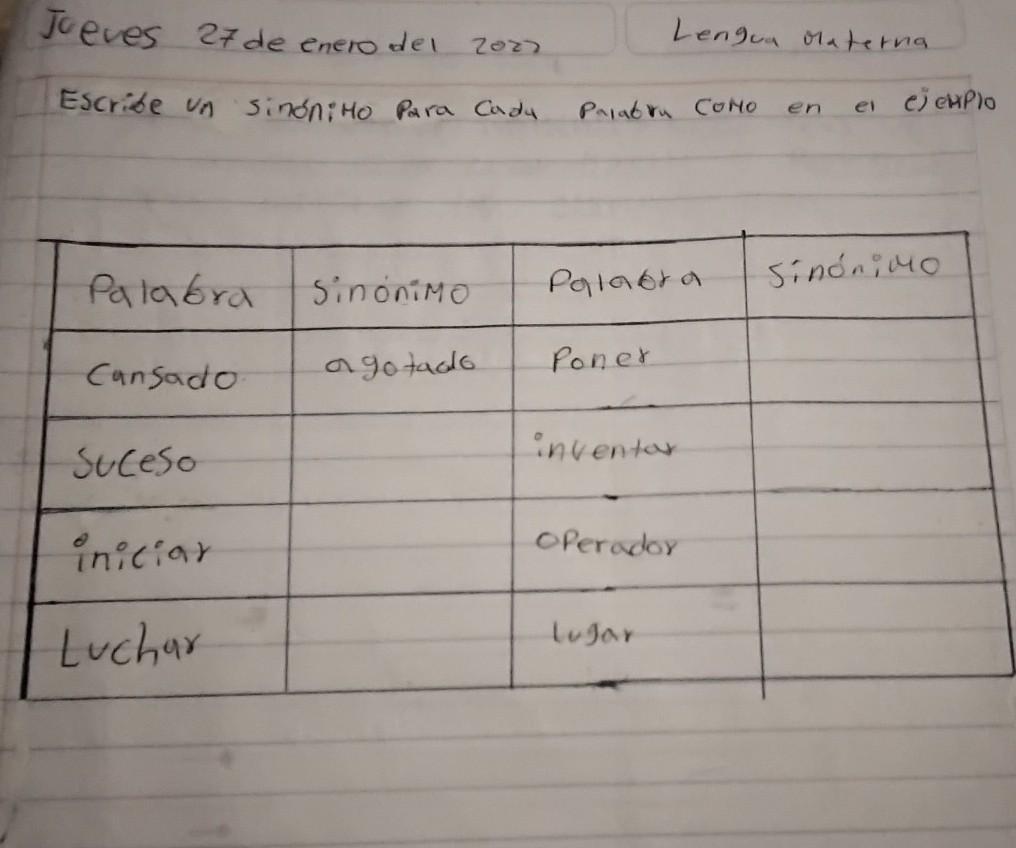 Jueves 27 de enero del 2022
Lengua Materna
Escribe un sinónimo Para Cada Palabra como en el ejemplo
Palabra sinónimo Palabra sinónimo
Cansado agotado Poner
Suceso inventar
iniciar operador
Luchar lugar